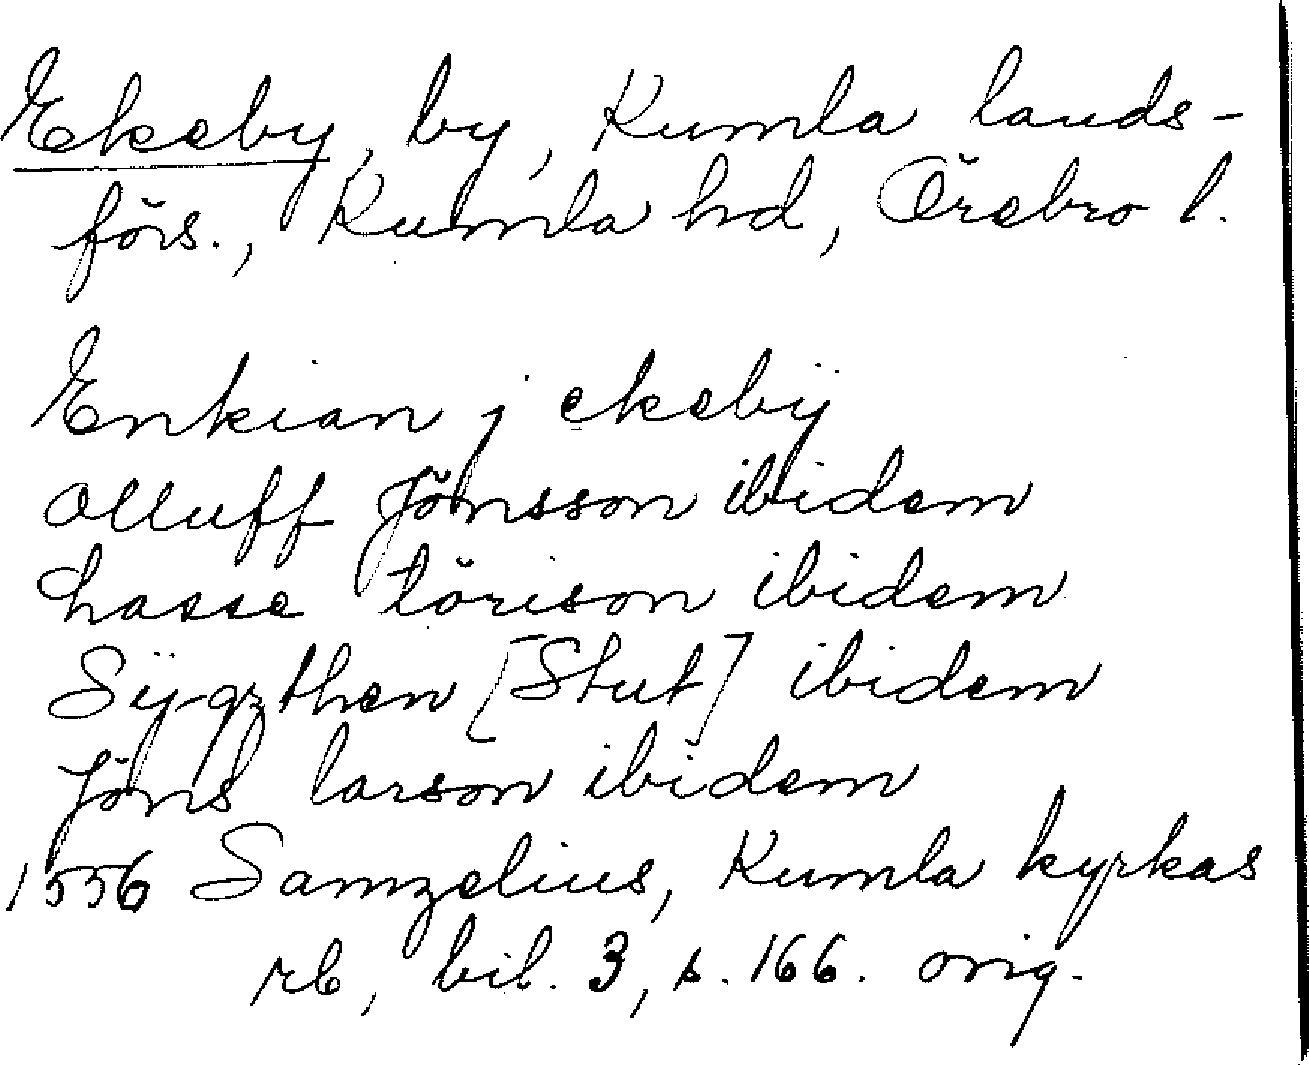 Ekeby, by, Kumla lands-
förs., Kumla hd, Örebro l.
Enkian j ekebÿ
Olluff Jönsson ibidem
hasse törison ibidem
Sÿgzthen [Stut] ibidem
Jöns larson ibidem
1556 Samzelius, Kumla kyrkas
rb, bil. 3, s. 166. orig.